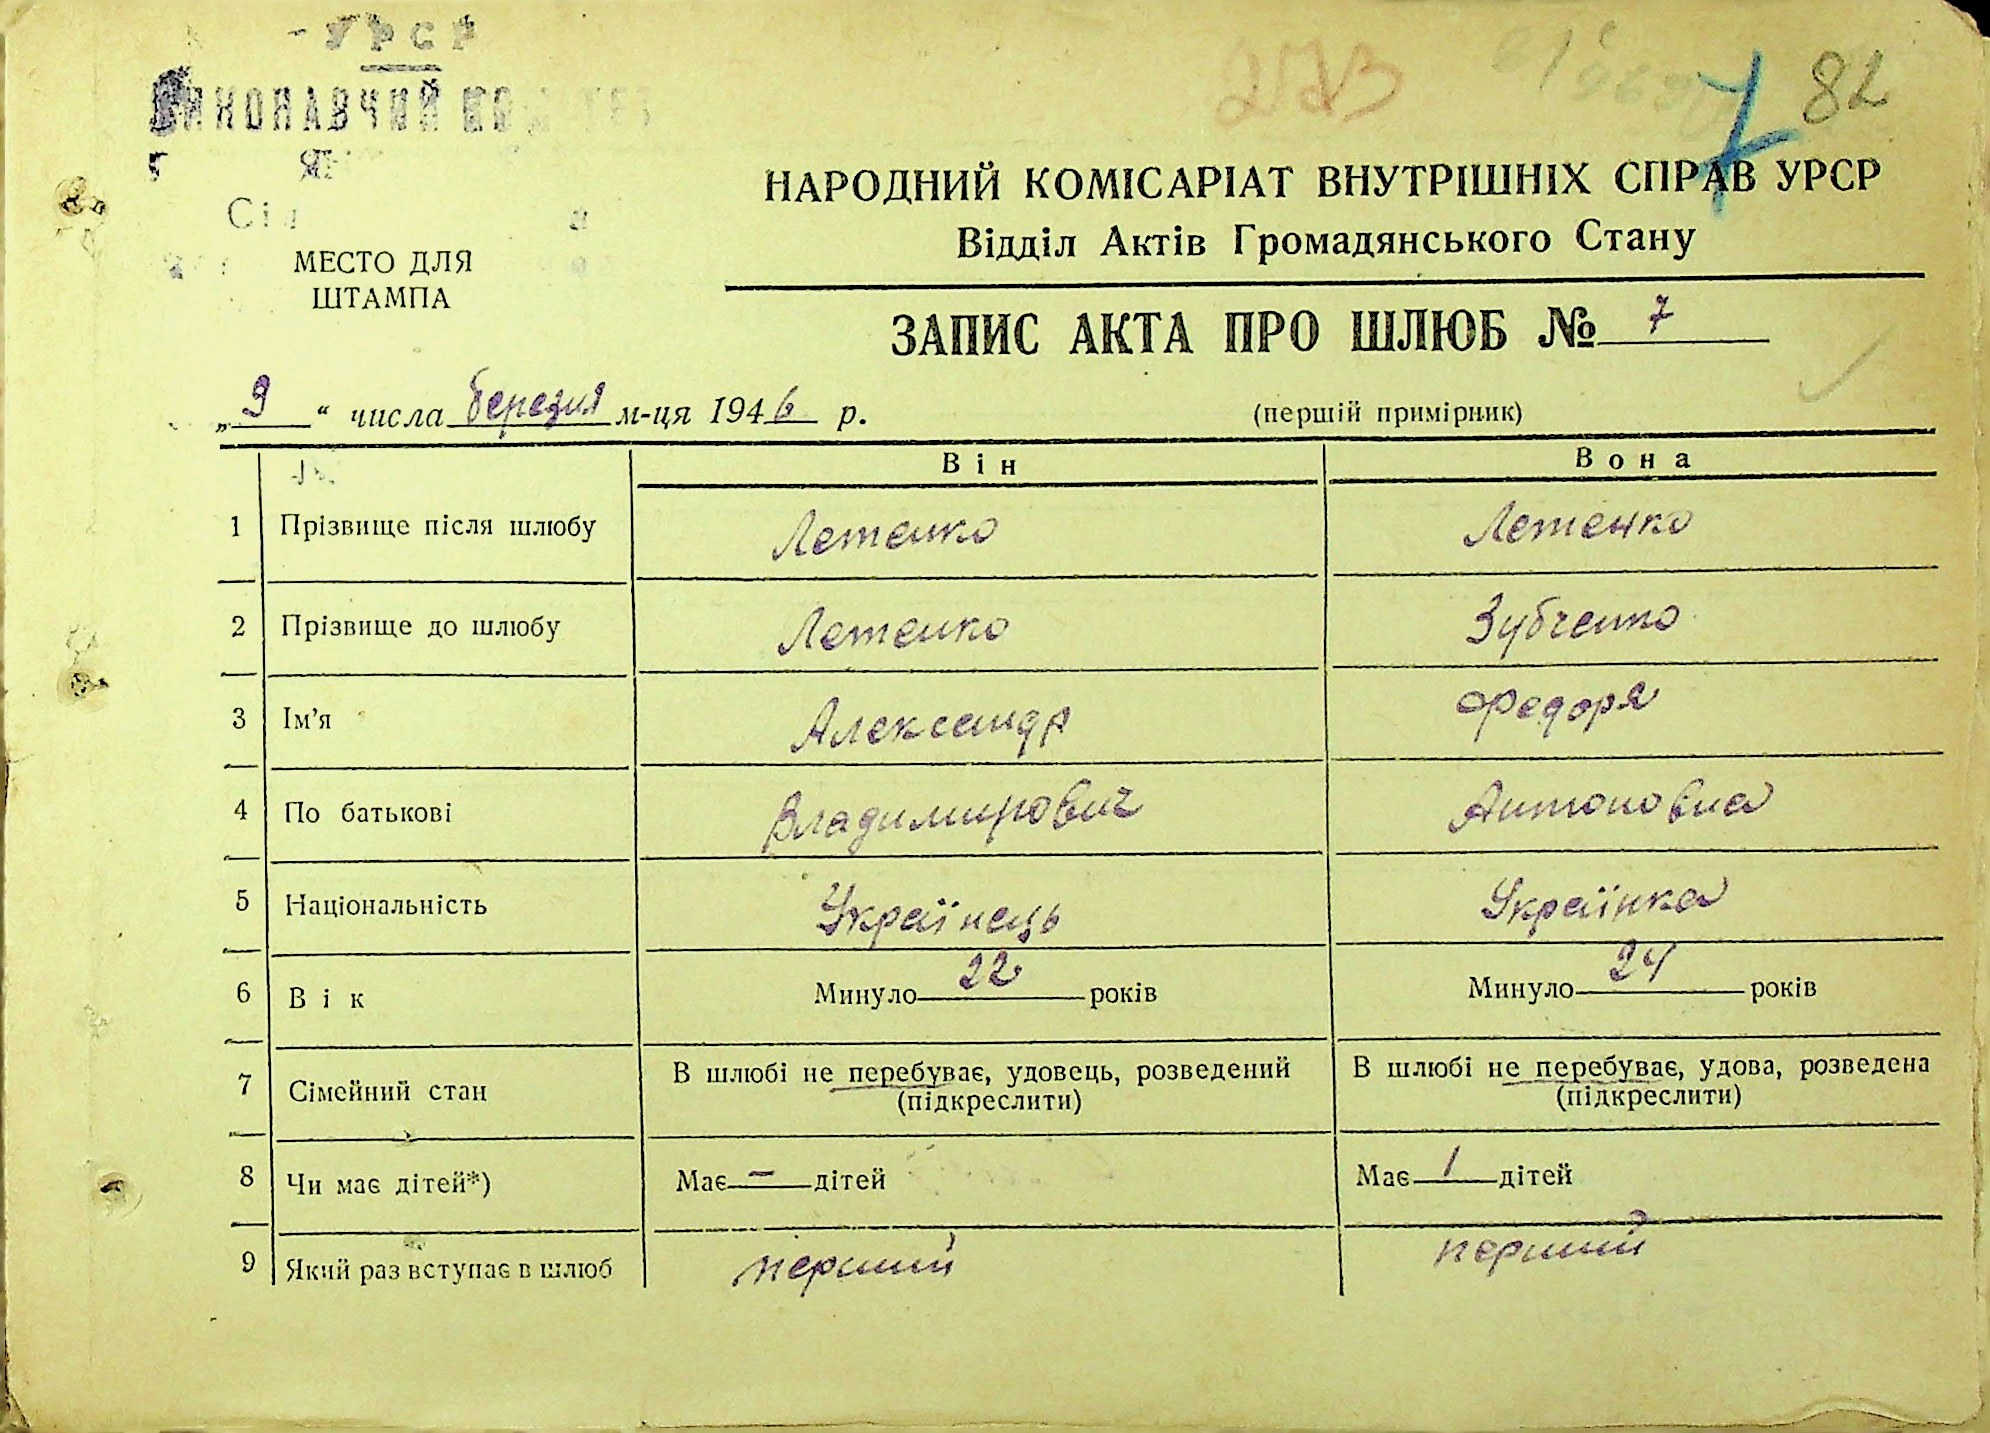 УРСР
ВИКОНАВЧИЙ
МЕСТО ДЛЯ
ШТАМПА
273
7
82
НАРОДНИЙ КОМІСАРІАТ ВНУТРІШНІХ СПРАВ УРСР
Відділ Актів Громадянського Стану
ЗАПИС АКТА ПРО ШЛЮБ № 7
„9“ числа березня м-ця 1946 р.
(першій примірник)
Він Вона
1 Прізвище після шлюбу Летенко Летенко
2 Прізвище до шлюбу Летенко Зубченко
3 Ім’я Александр Федоря
4 По батькові Владимирович Антоновна
5 Національність Українець Українка
6 Вік Минуло 22 років Минуло 24 років
7 Сімейний стан В шлюбі не перебуває, удовець, розведений (підкреслити) В шлюбі не перебуває, удова, розведена (підкреслити)
8 Чи має дітей*) Має – дітей Має 1 дітей
9 Який раз вступає в шлюб перший перший